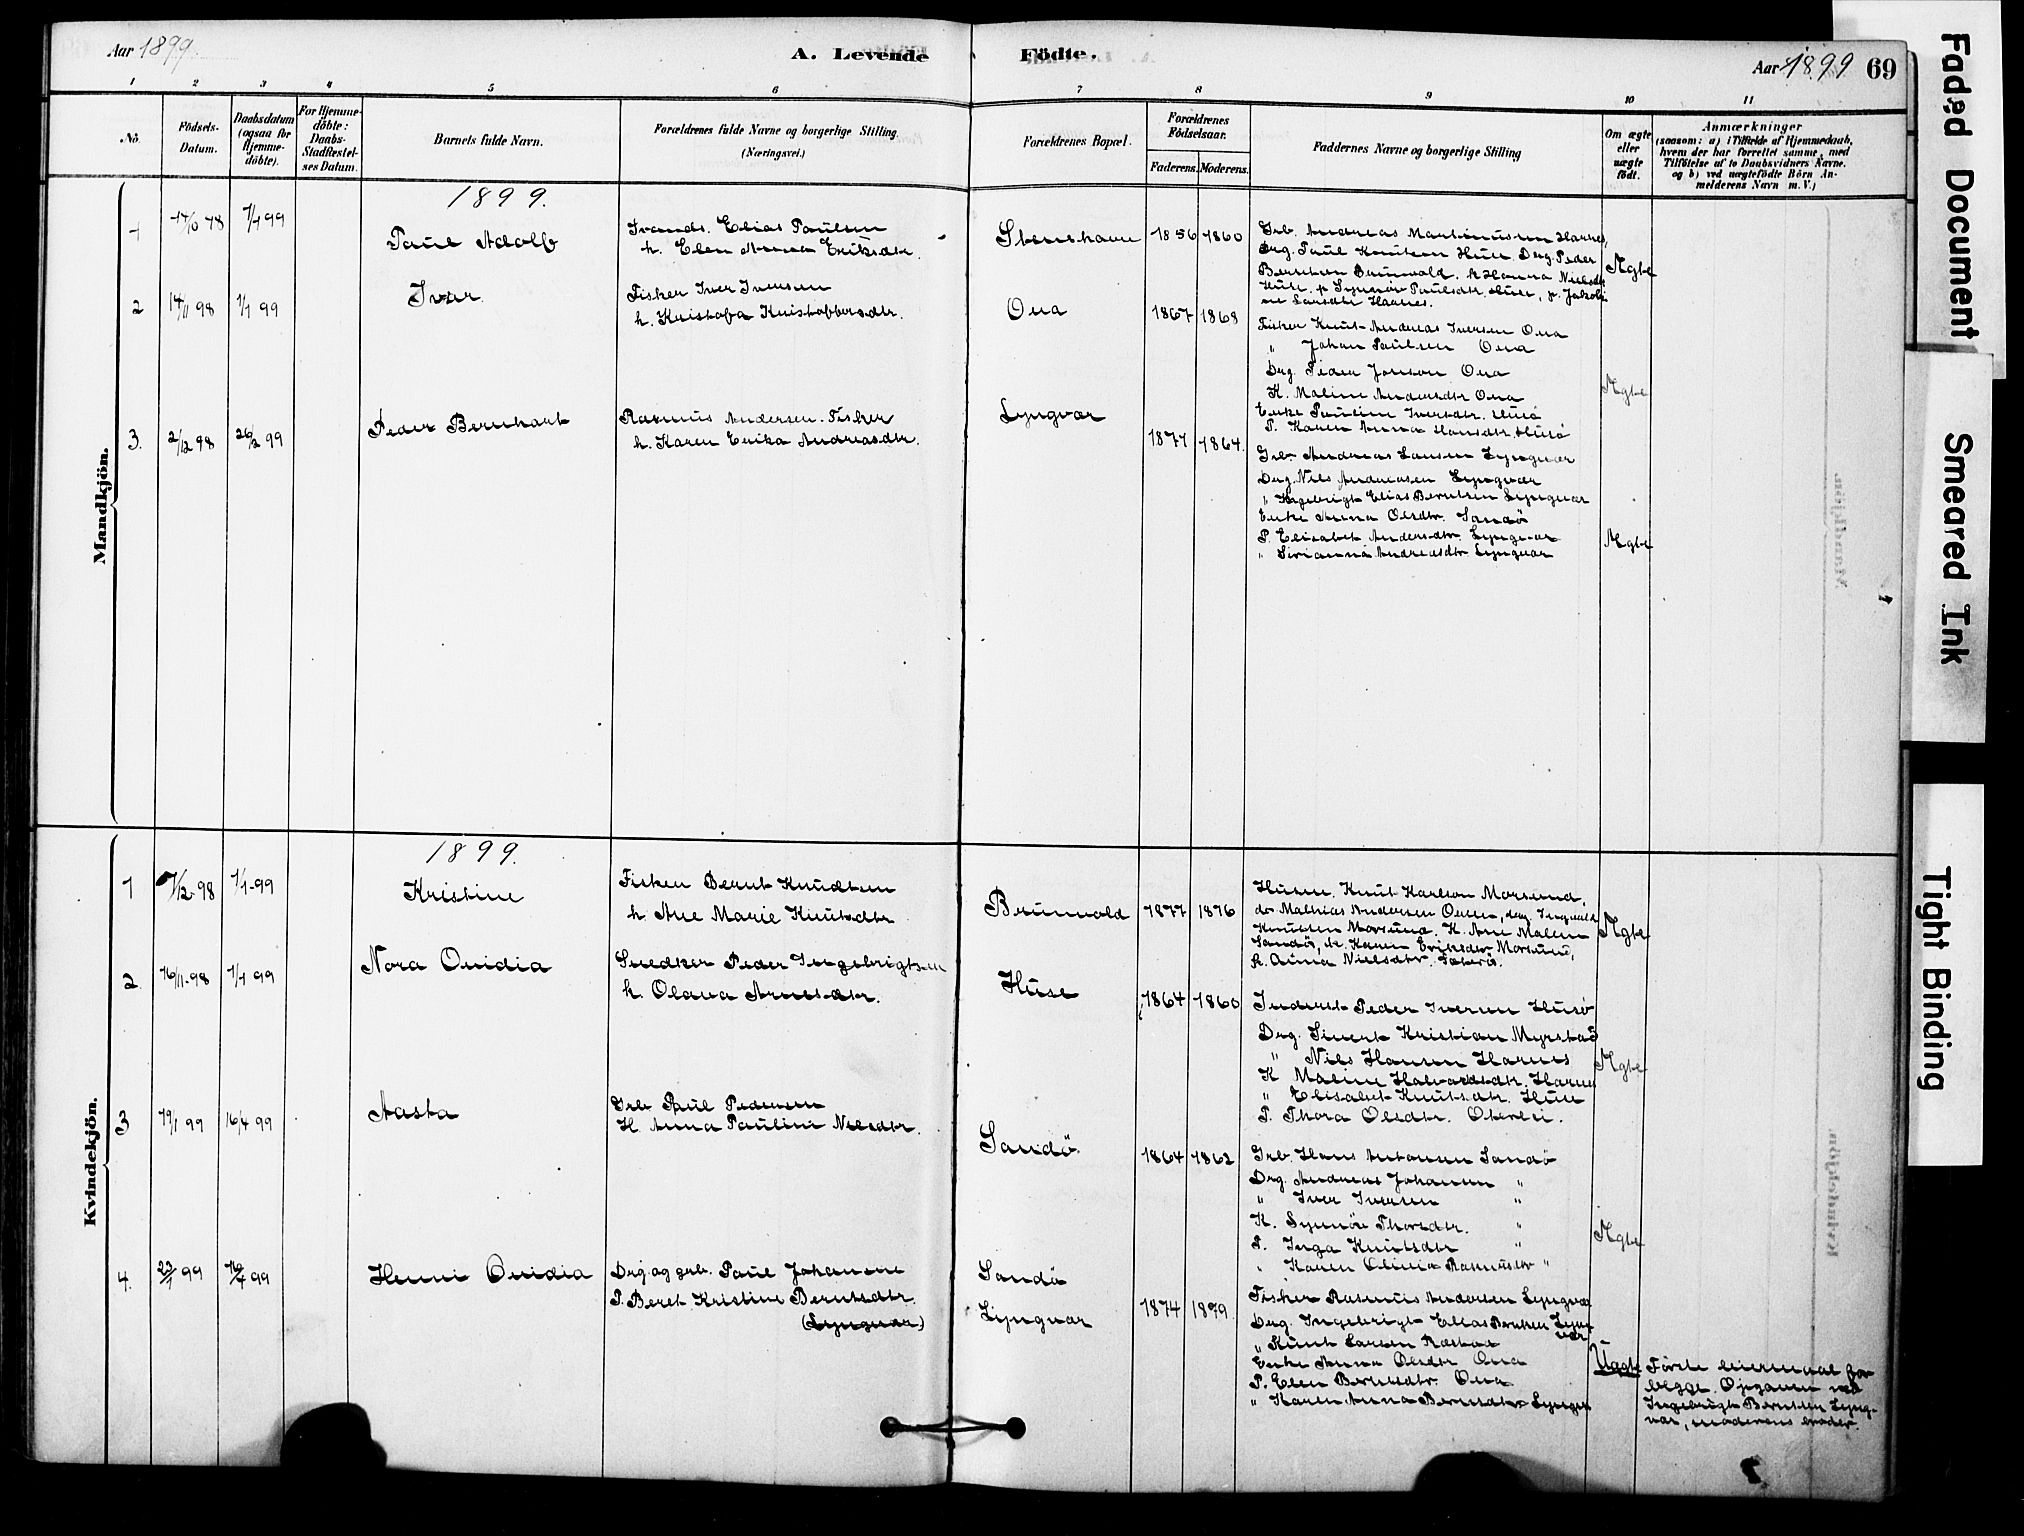 Aar 1899.
A. Levende
Födte.
Aar 1899
69
1 2 3 4 5 6 7 8 9 10 11
No.
Födsels-Datum.
Daabsdatum (ogsaa for Hjemme-döbte).
For Hjemme-döbte: Daabs-Stadfæstel-ses Datum.
Barnets fulde Navn.
Forældrenes fulde Navne og borgerlige Stilling.
(Næringsvei.)
Forældrenes Bopæl.
Forældrenes Födselsaar.
Faderens. Moderens.
Faddernes Navne og borgerlige Stilling
Om ægte eller uægte födt.
Anmærkninger
(saasom: a) i Tilfælde af Hjemmedaab,
hvem der har forrettet samme, med
Tilföielse af to Daabsvidners Navne.
og b) ved uægtefödte Börn An-
melderens Navn m. V.)
Mandkjön.
1899.
1
1/1 99
Paul Adolf
Elias Paulsen
h. Elen Anna Eriksdtr.
Stenshavn
1856 1860
Grb. Andreas Martinussen Harnes,
Drg. Paul Knutsen Huse Drg. Peder
Berntsen Brunvold. K Hanna Nielsdtr
Huse. p Synnöv Paulsdtr. Huse, p. Jakobi-
ne Larsdtr Harnes.
Ægte
2
14/11 98
1/1 99
Iver.
Fisker Iver Iversen
h. Kristofa Kristoffersdtr.
Ona
1867 1868
Fisker Knut Andreas Iversen Ona
" Johan Paulsen Ona
Drg. Peder Jonson Ona
K. Maline Andersdtr Ona
Enke Pauline Iversdtr. Husö
P. Karen Anna Hansdtr. Husö
Ægte
3.
2/12 98
26/2 99
Peder Bernhart
Rasmus Andersen. Fisker
h. Karen Erika Andreasdtr.
Lyngvær
1877 1864.
Grb. Andreas Larsen Lyngvær
Drg. Nils Andreasen Lyngvær
" Ingebrigt Elias Berntsen Lyngvær
Enke Anna Olsdtr. Sandö
P. Elisabet Andersdtr. Lyngvær
" Sirianna Andreasdtr Lyngvær
Ægte
Kvindekjön.
1899.
1
1/12-98
1/1-99
Kristine
Fisker Bernt Knudtsen
h. Ane Marie Knutsdtr
Brunvold
1877 1876
Husm. Knut Karlson Morsund,
do Mathias Andersen Ouen, drg. Ingvald
Knutsen Morsund. K. Ane Malen
Sandö, k. Karen Eriksdtr Morsund,
k. Anna Nielsdtr.
Ægte
2.
16/11-98
1/1 99
Nora Ovidia
Snedker Peder Ingebrigtsen
h. Olava Arnesdtr.
Huse
1864 1860
Inderst Peder Iversen Husö
Drg. Sivert Kristian Myrstad
" Nils Hansen Harnes
K Maline Halvardsdtr. Harnes
" Elisabet Knutsdtr. Huse
P. Thora Olsdtr. Oterlei.
Ægte
3
19/1 99
16/4 99
Aasta
Grb Paul Pedersen
H. Anna Pauline Nilsdtr.
Sandö
1864 1862
Grb. Hans Antonsen Sandö
Drg. Andreas Johansen "
" Iver Iversen "
K. Synnöv Thorsdtr. "
P. Inga Knutsdtr "
" Karen Olivia Rasmusdtr "
Ægte
4.
22/1 99
16/4 99
Henni Ovidia
Drg. og grb. Paul Johansen
P. Beret Kristine Berntsdtr.
(Lyngvær)
Sandö
Lyngvær
1874 1879
Fisker Rasmus Andersen Lyngvær
Drg. Ingebrigt Elias Berntsen Lyng
vær
" Knut Larsen Ræstad
Enke Anna Olsdtr Ona
P. Elen Berntsdtr. Ona
" Karen Anna Berntsdtr Lyngvær
Uægte
Förste leiermaal for
begge. Opgaven ved
Ingebrigt Berntsen Lyng-
vær, moderens broder.
Faded Document
Smeared Ink
Tight Binding